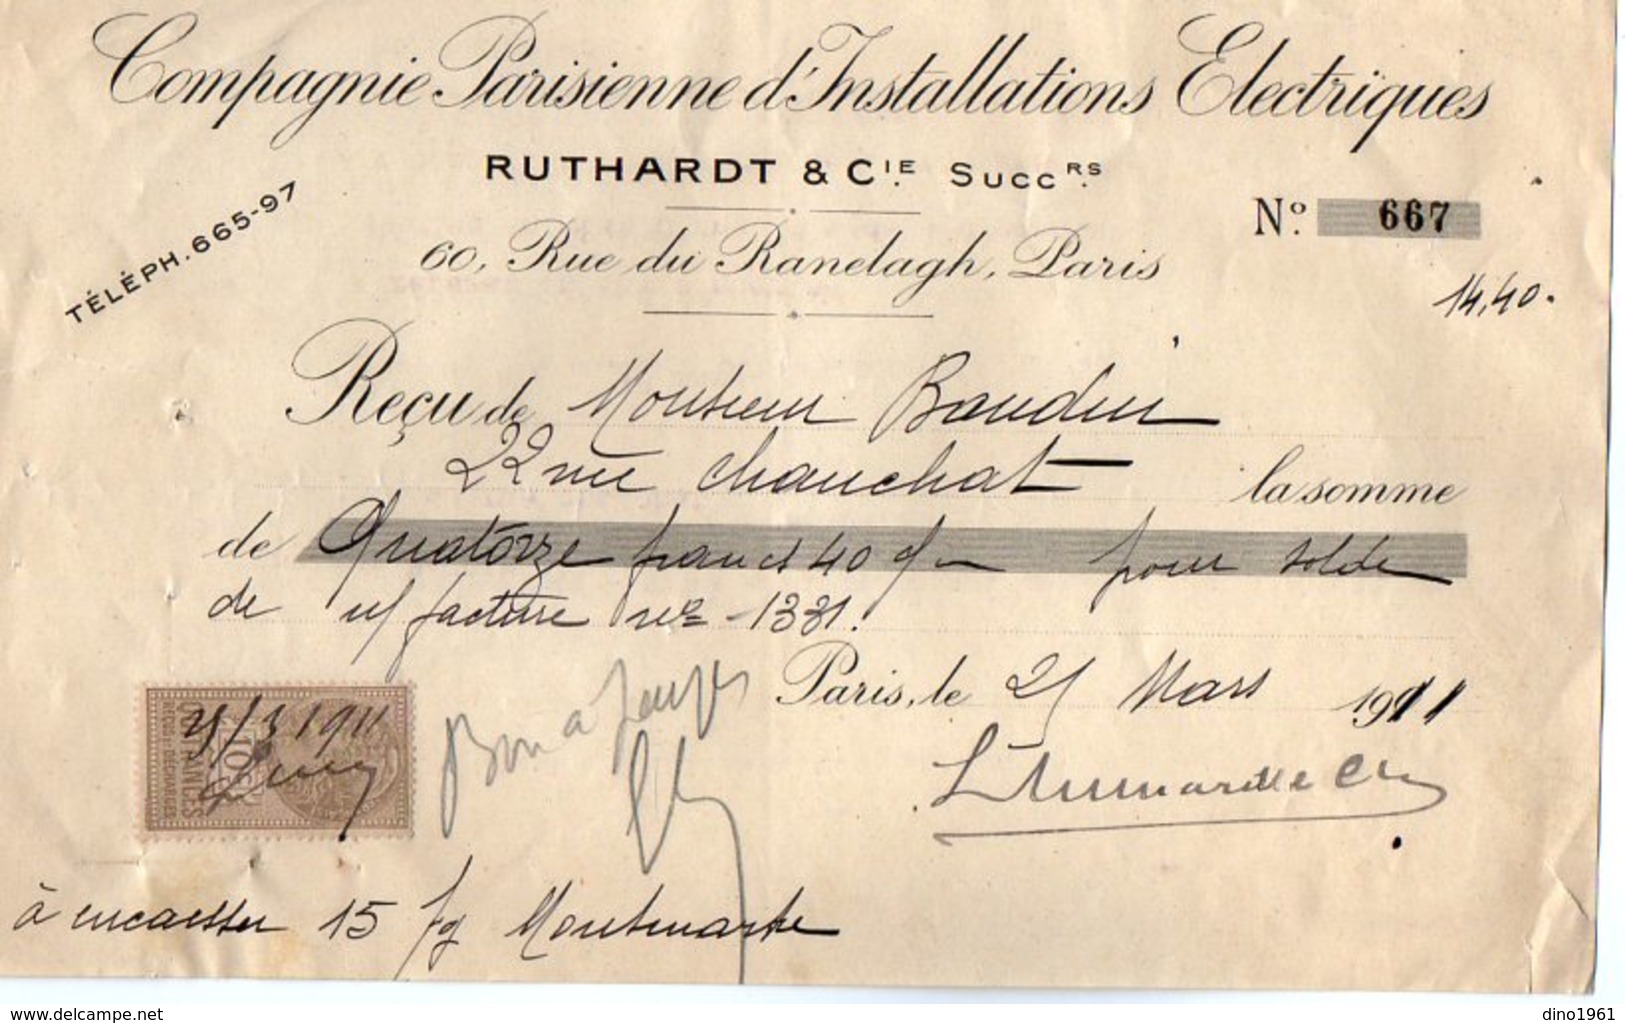 Compagnie Parisienne d'Installations Electriques
RUTHARDT & CIE. SUCCRS.
TÉLÉPH. 665-97
No. 667
60, Rue du Ranelagh, Paris
14,40.
Reçu de Monsieur Baudin
22 rue Chauchat la somme
de Quatorze francs 40 pour solde
de n/ facture no 1331.
Paris, le 21 Mars 1911
21/3 1911
QUITTANCES
REÇUS ET DÉCHARGES
10c
Bon à payer
à encaisser 15 fg Montmartre
delcampe.net
dino1961